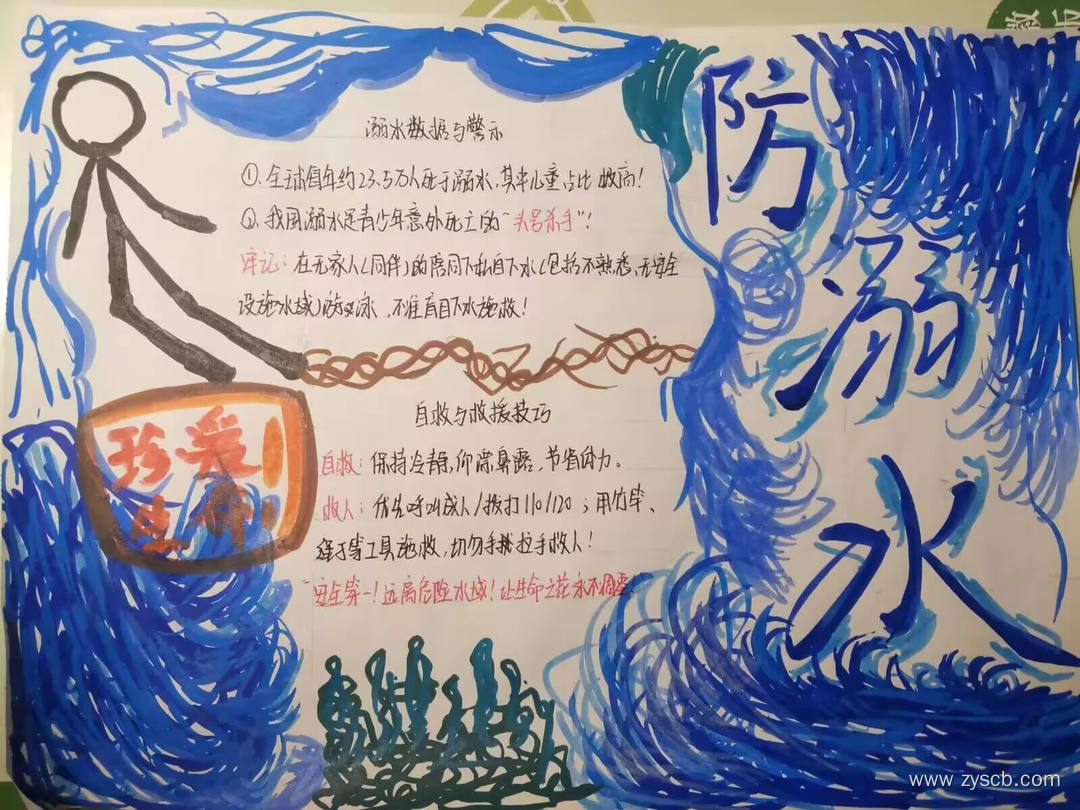 防溺水
溺水数据与警示
①.全球每年约23.5万人死于溺水,其中儿童占比 较高!
②.我国溺水是青少年意外死亡的“头号杀手”!
牢记:在无家人(同伴)的陪同下私自下水(包括不熟悉,无安全
设施水域)游泳,不准盲目下水施救!
自救与救援技巧
自救:保持冷静,仰漂鼻露,节省体力。
救人:优先呼叫成人/拨打110/120;用竹竿、
绳子等工具施救,切勿手拉手救人!
“安全第一!远离危险水域!让生命之花永不凋零!”
珍爱
生命!
www.zyscb.com